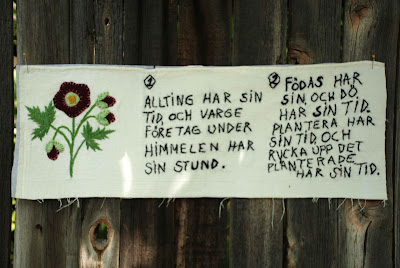 1
ALLTING HAR SIN
TID, OCH VARGE
FÖRETAG UNDER
HIMMELEN HAR
SIN STUND.
2 FÖDAS HAR
SIN, OCH DÖ
HAR SIN TID.
PLANTERA HAR
SIN TID, OCH
RYCKA UPP DET
PLANTERADE
HAR SIN TID.